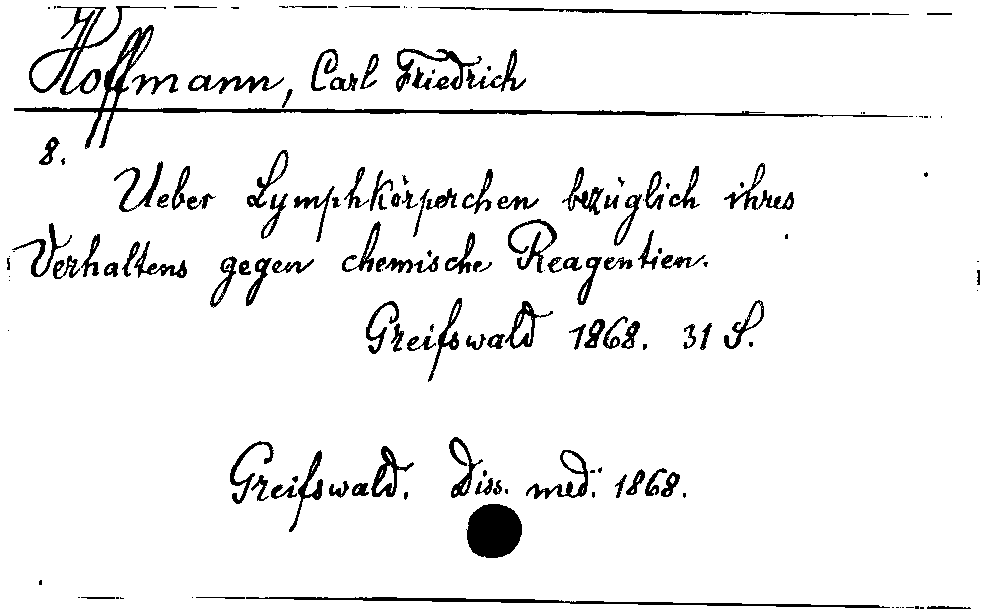 Hoffmann, Carl Friedrich
8.
Ueber Lymphkörperchen bezüglich ihres
Verhaltens gegen chemische Reagentien.
Greifswald 1868. 31 S.
Greifswald. Diss. med. 1868.